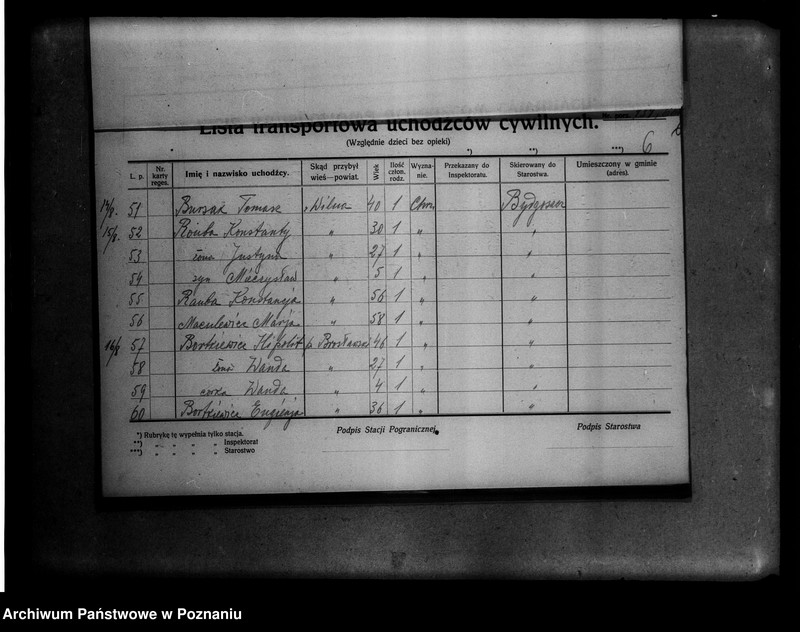 Lista transportowa uchodźców cywilnych.
(Względnie dzieci bez opieki)
*) **) ***) 6
L. p. Nr. karty reges. Imię i nazwisko uchodźcy. Skąd przybył wieś—powiat. Wiek Ilość człon. rodz. Wyznanie. Przekazany do Inspektoratu. Skierowany do Starostwa. Umieszczony w gminie (adres).
51 Bursak Tomasz Wilna 40 1 Chrz.
15/8. 52 Rouba Konstanty „ 30 1 „ „
53 żona Justyna „ 27 1 „ „
54 syn Mieczysław „ 5 1 „ „
55 Rauba Konstancja „ 56 1 „ „
56 Maculewicz Marja „ 58 1 „ „
16/8 57 Bortkiewicz Hipolit 46 1 „ „
58 żona Wanda „ 27 1 „ „
59 córka Wanda „ 4 1 „ „
60 Bortkiewicz „ 36 1 „ „
*) Rubrykę tę wypełnia tylko stacja.
**) „ „ „ „ Inspektorat
***) „ „ „ „ Starostwo
Podpis Stacji Pogranicznej.
Podpis Starostwa
Archiwum Państwowe w Poznaniu